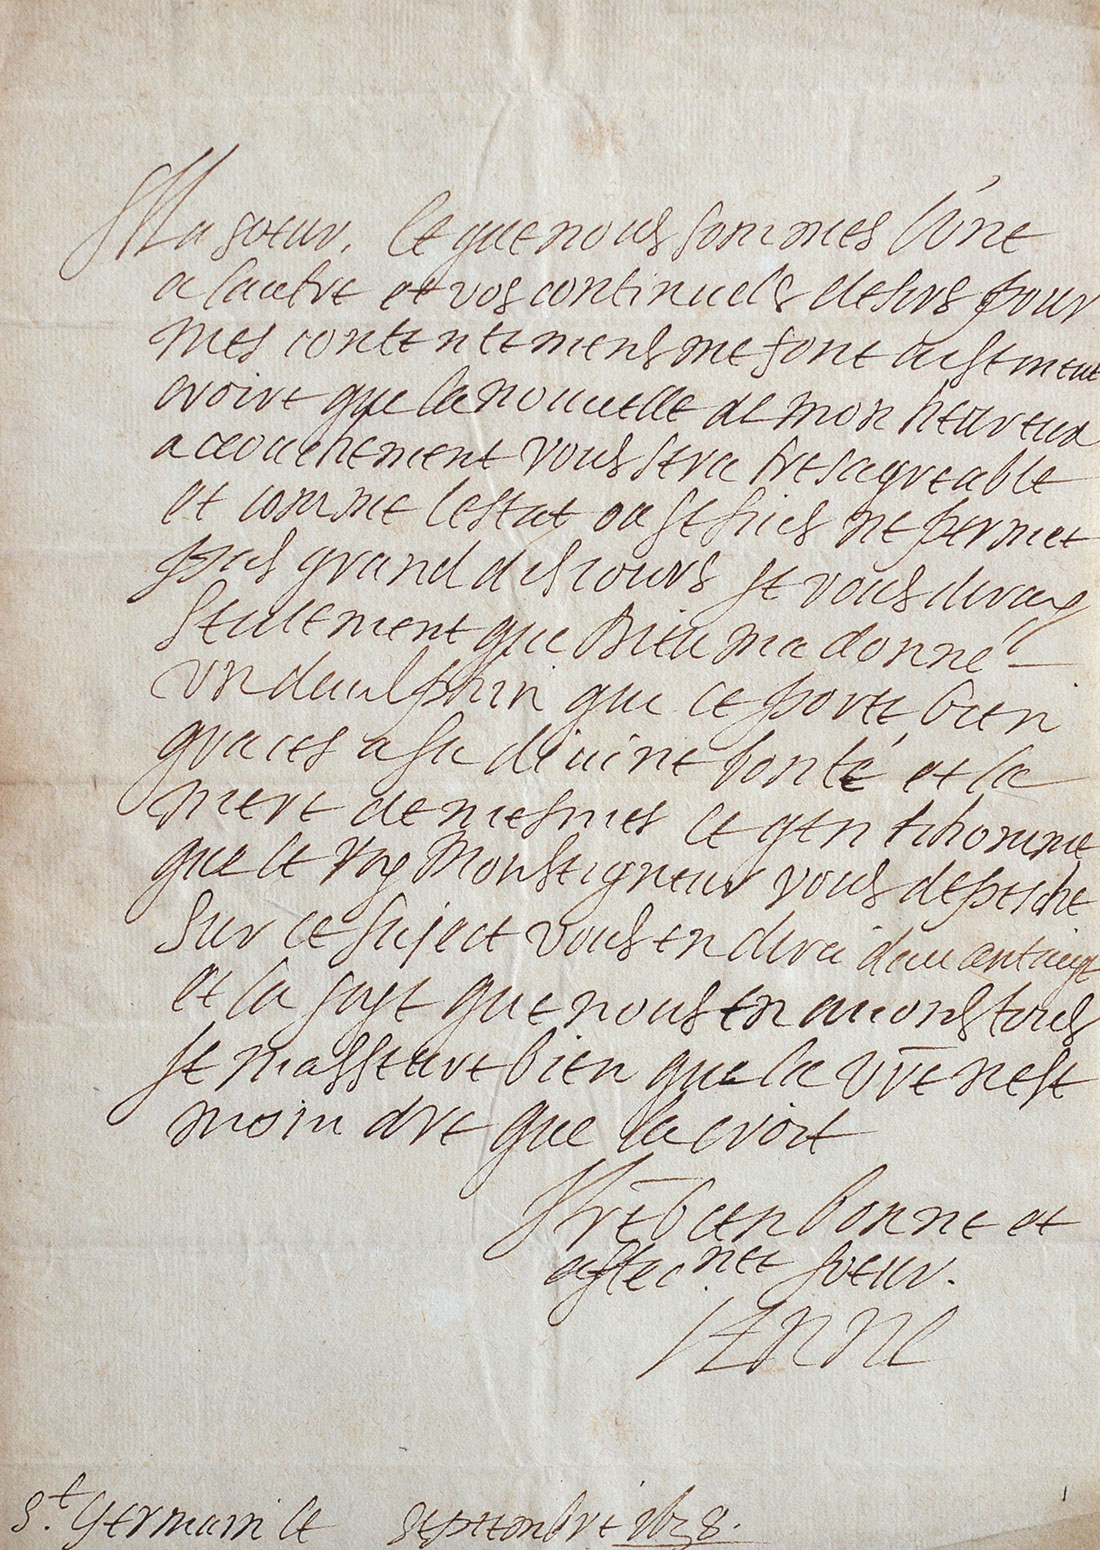 Ma soeur, Ce que nous sommes l'une
a lautre et vos continuels desirs pour
mes contentemens me font aisement
croire que la nouuelle de mon heureux
acouchement vous sera tres agreable
et comme lestat ou je suis ne permet
pas grand discours je vous diray
seulement que Dieu ma donné
vn daulphin qui ce porte bien
graces a sa diuine bonté et la
mere de mesmes le gentilhomme
que le Roy Monseigneur vous depesche
sur ce suject vous en dira dauantaige
et la joye que nous en auons tous
je masseure bien que la vre nest
moindre que la croit
Vre bien bonne et
affec.nee soeur.
ANNE
St. Germain le septembre 1638.
1